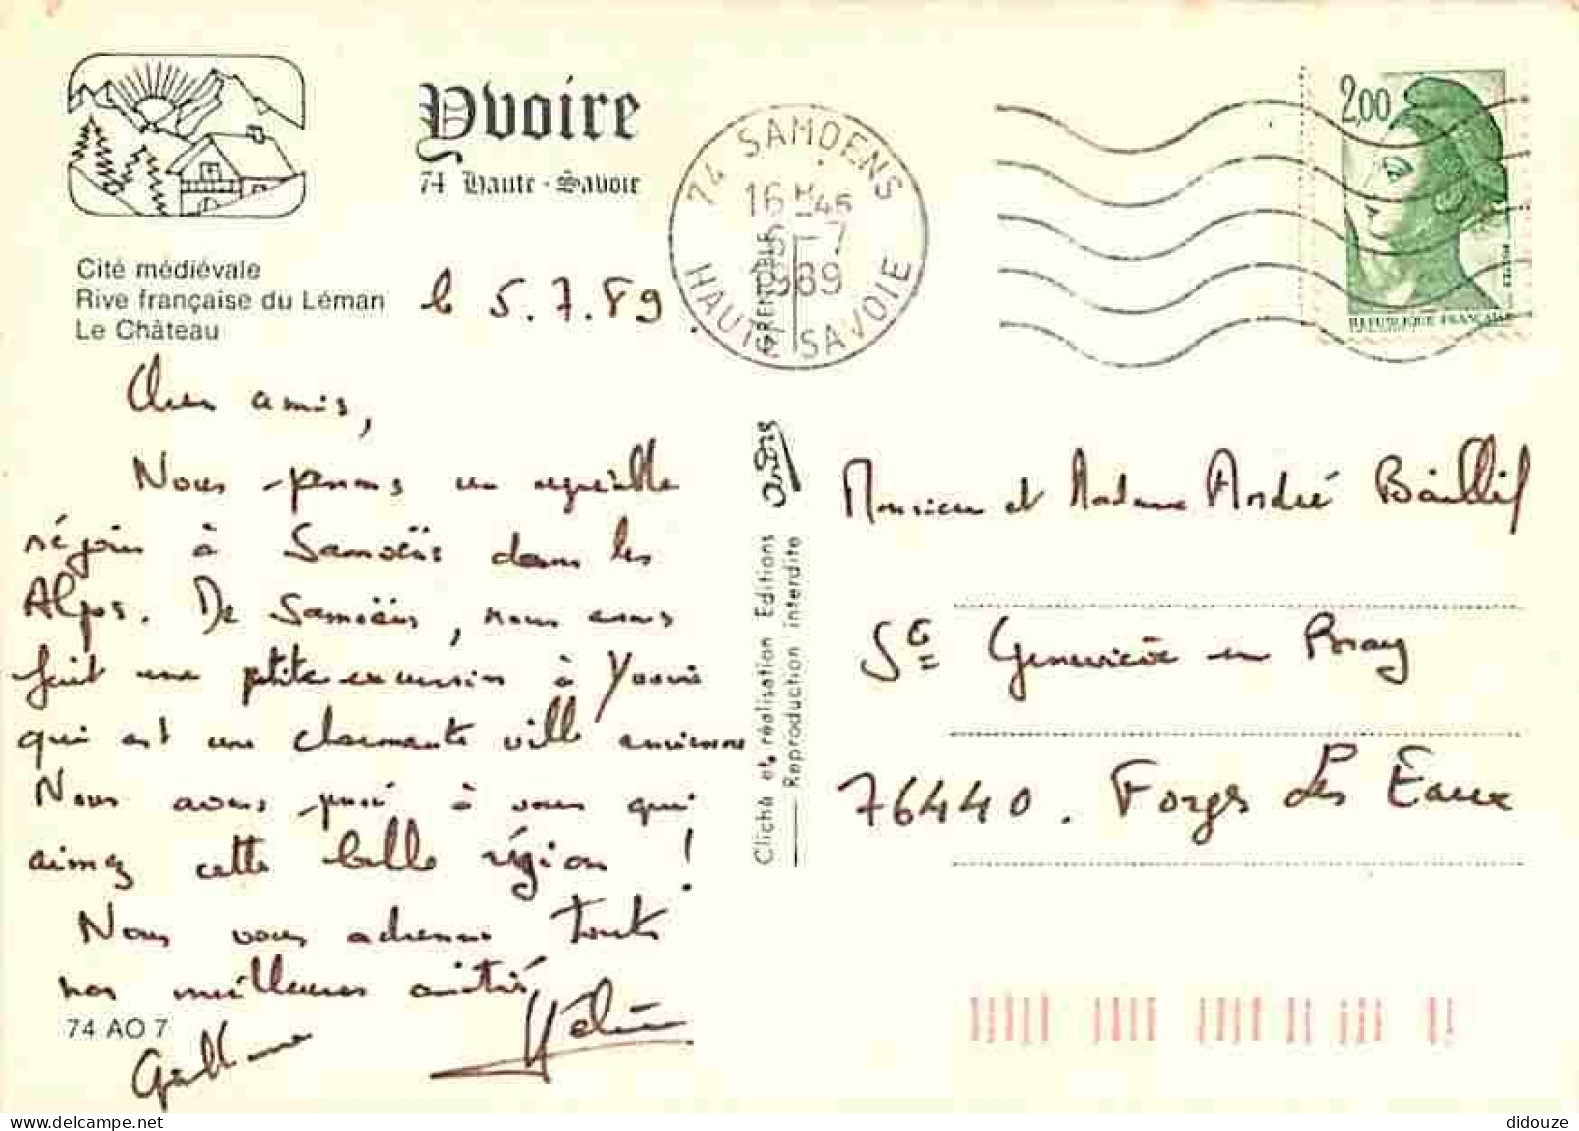 Yvoire
74 Haute-Savoie
Cité médiévale
Rive française du Léman
Le Château
le 5.7.89.
74 SAMOENS
16 H 45
5-7
1989
HAUTE SAVOIE
GRENOBLE
2,00
REPUBLIQUE FRANÇAISE
Chers amis,
Nous passons un agréable
séjour à Samoëns dans les
Alpes. De Samoëns, nous avons
fait une petite excursion à Yvoire
qui est une charmante ville ancienne
Nous avons pensé à vous qui
aimez cette belle région !
Nous vous adressons toutes
nos meilleures amitiés
Hélène
74 AO 7
Cliché et réalisation Editions André
Reproduction interdite
Monsieur et Madame André
Ste Geneviève en Bray
76440. Forges Les Eaux
didouze
delcampe.net